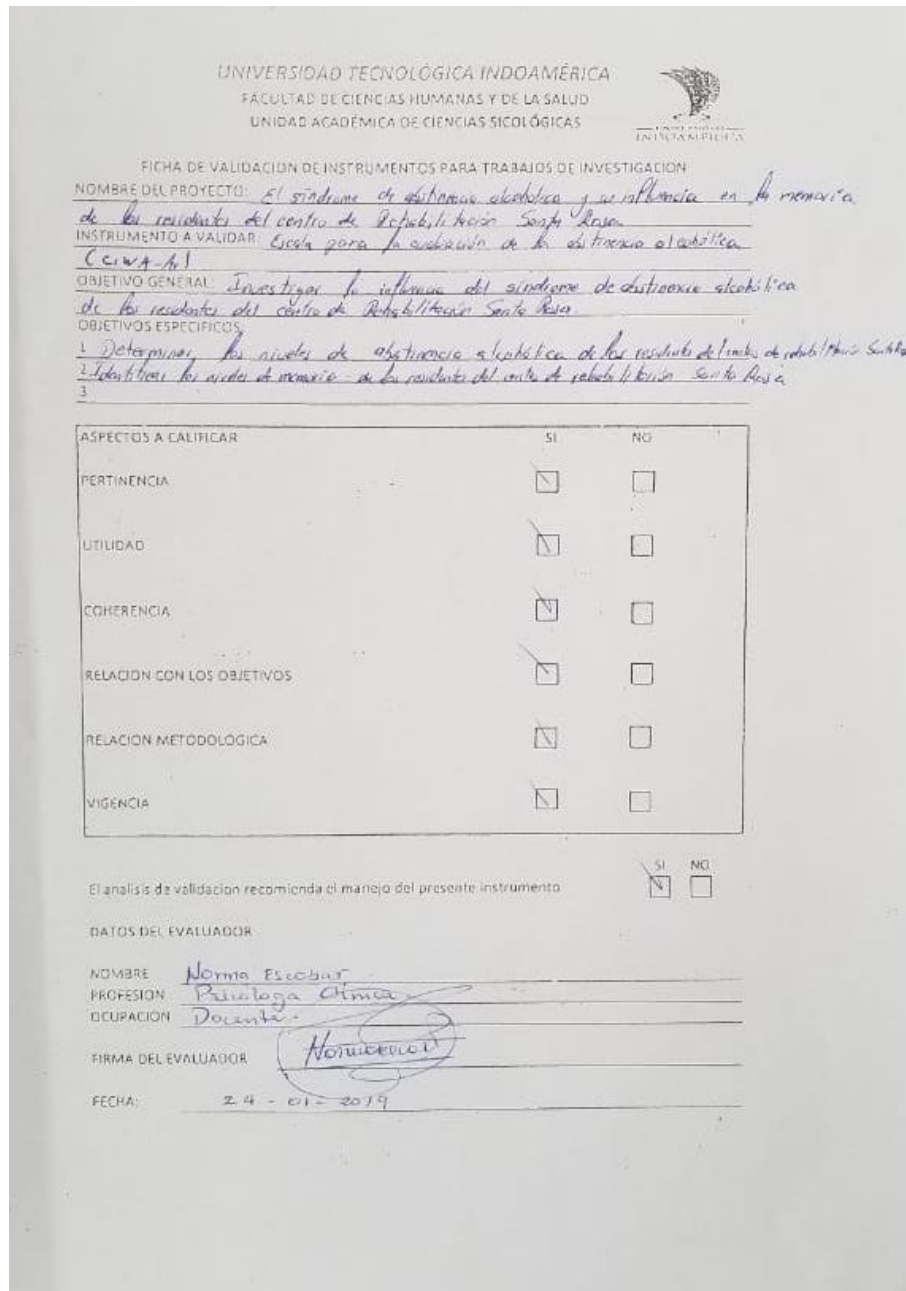 UNIVERSIDAD TECNOLÓGICA INDOAMÉRICA
FACULTAD DE CIENCIAS HUMANAS Y DE LA SALUD
UNIDAD ACADÉMICA DE CIENCIAS SICOLÓGICAS
UNIVERSIDAD
INDOAMÉRICA
FICHA DE VALIDACION DE INSTRUMENTOS PARA TRABAJOS DE INVESTIGACION
NOMBRE DEL PROYECTO: El síndrome de abstinencia alcohólica y su influencia en la memoria
de los residentes del centro de Rehabilitación Santa Rosa
INSTRUMENTO A VALIDAR: Escala para la evaluación de la abstinencia alcohólica
(CIWA-Ar)
OBJETIVO GENERAL: Investigar la influencia del síndrome de abstinencia alcohólica
de los residentes del centro de Rehabilitación Santa Rosa.
OBJETIVOS ESPECIFICOS:
1 Determinar los niveles de abstinencia alcohólica de los residentes del centro de rehabilitación Santa Ro
2 Identificar los niveles de memoria de los residentes del centro de rehabilitación Santa Rosa
3
ASPECTOS A CALIFICAR SI NO
PERTINENCIA
UTILIDAD
COHERENCIA
RELACION CON LOS OBJETIVOS
RELACION METODOLÓGICA
VIGENCIA
SI NO
El analisis de validacion recomienda el manejo del presente instrumento
DATOS DEL EVALUADOR
NOMBRE Norma Escobar
PROFESION Psicóloga Clínica
OCUPACION Docente.
FIRMA DEL EVALUADOR
FECHA: 24 - 01 - 2019